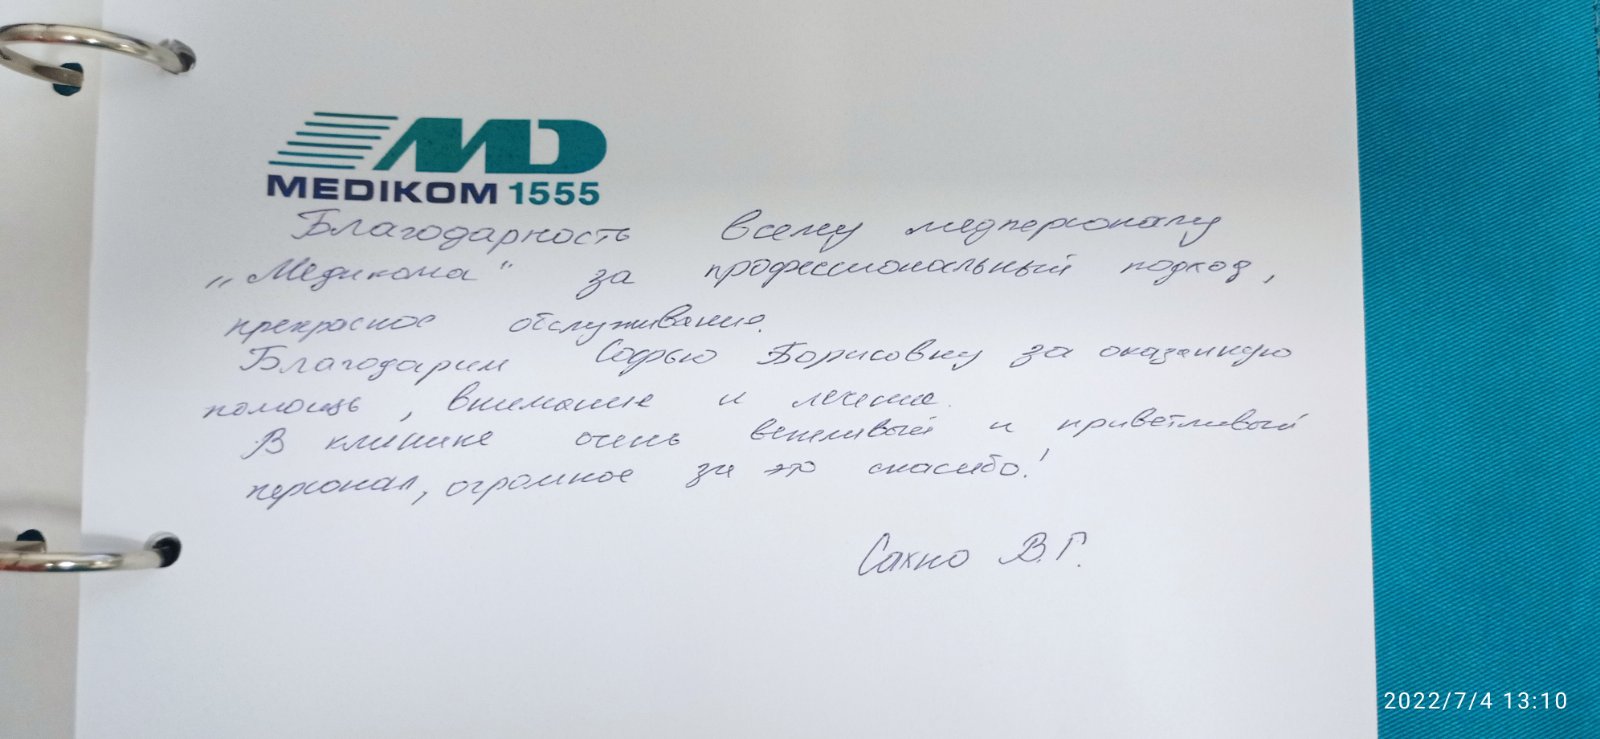 MD
MEDIKOM 1555
Благодарность всему медперсоналу
„Медикома" за профессиональный подход,
прекрасное обслуживание.
Благодарим Софью Борисовну за оказанную
помощь, внимание и лечение.
В клинике очень вежливый и приветливый
персонал, огромное за это спасибо!
Сахно В.Г.
2022/7/4 13:10